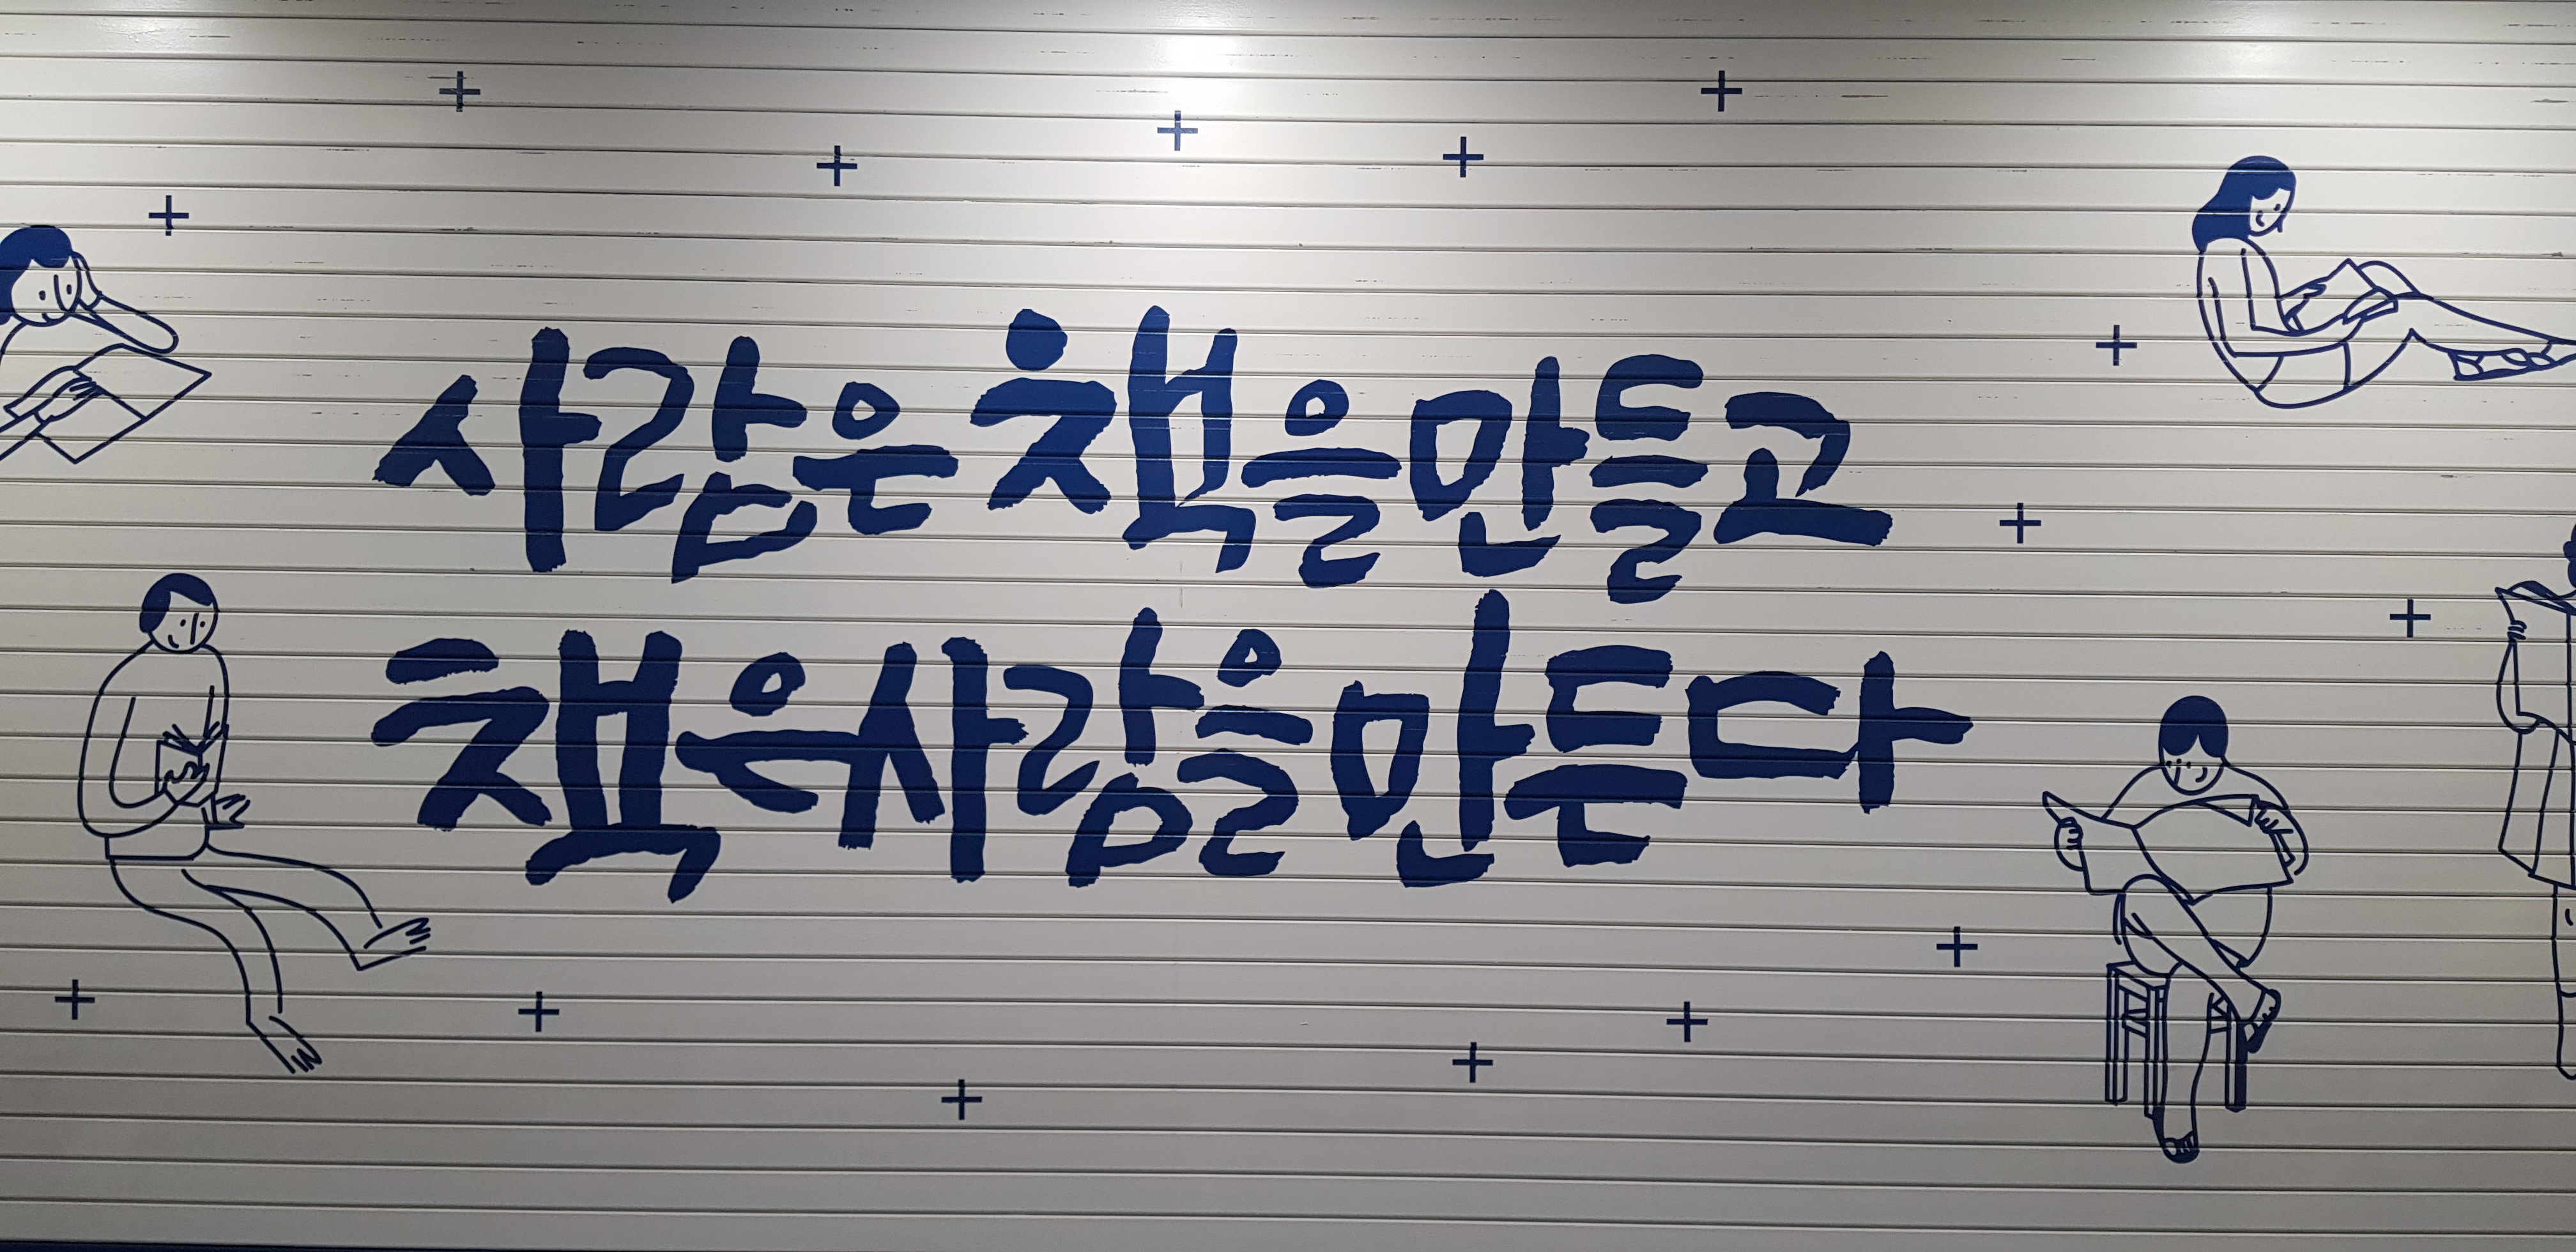 사람은 책을 만들고
책은 사람을 만든다